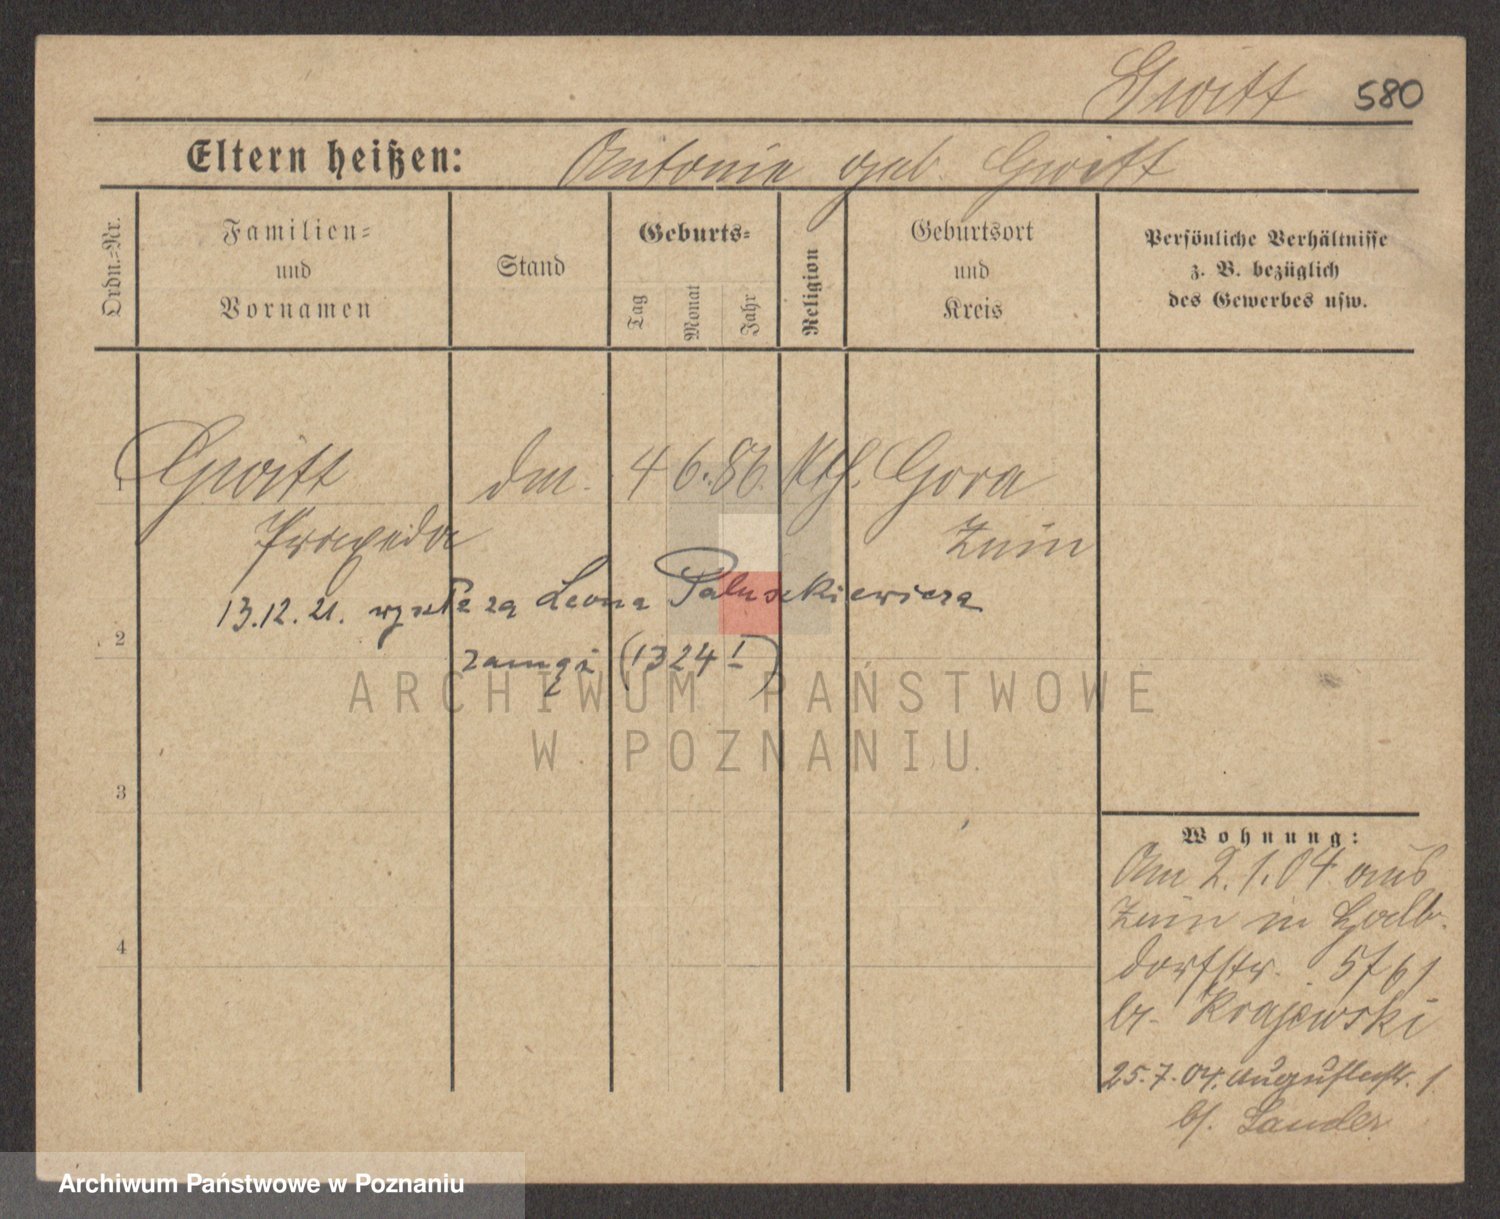 Gwitt 580
Eltern heißen: Antonie geb. Gwitt
Ordn.-Nr.
Familien-
und
Vornamen
Stand
Geburts-
Tag
Monat
Jahr
Religion
Geburtsort
und
Kreis
Persönliche Verhältnisse
z. B. bezüglich
des Gewerbes usw.
1 Gwitt dm. 4 6. 86. Kth. Gora
Praxeda Znin
13.12.21. wyszła za Leona Paluszkiewicza
2
zamąż (1324 I)
ARCHIWUM PAŃSTWOWE
W POZNANIU
3
4
Wohnung:
Am 2.1.04 aus
Znin in
dorfstr. 57
b. Krajewski
25.7.04. Augustastr. 1
b. Sander
Archiwum Państwowe w Poznaniu